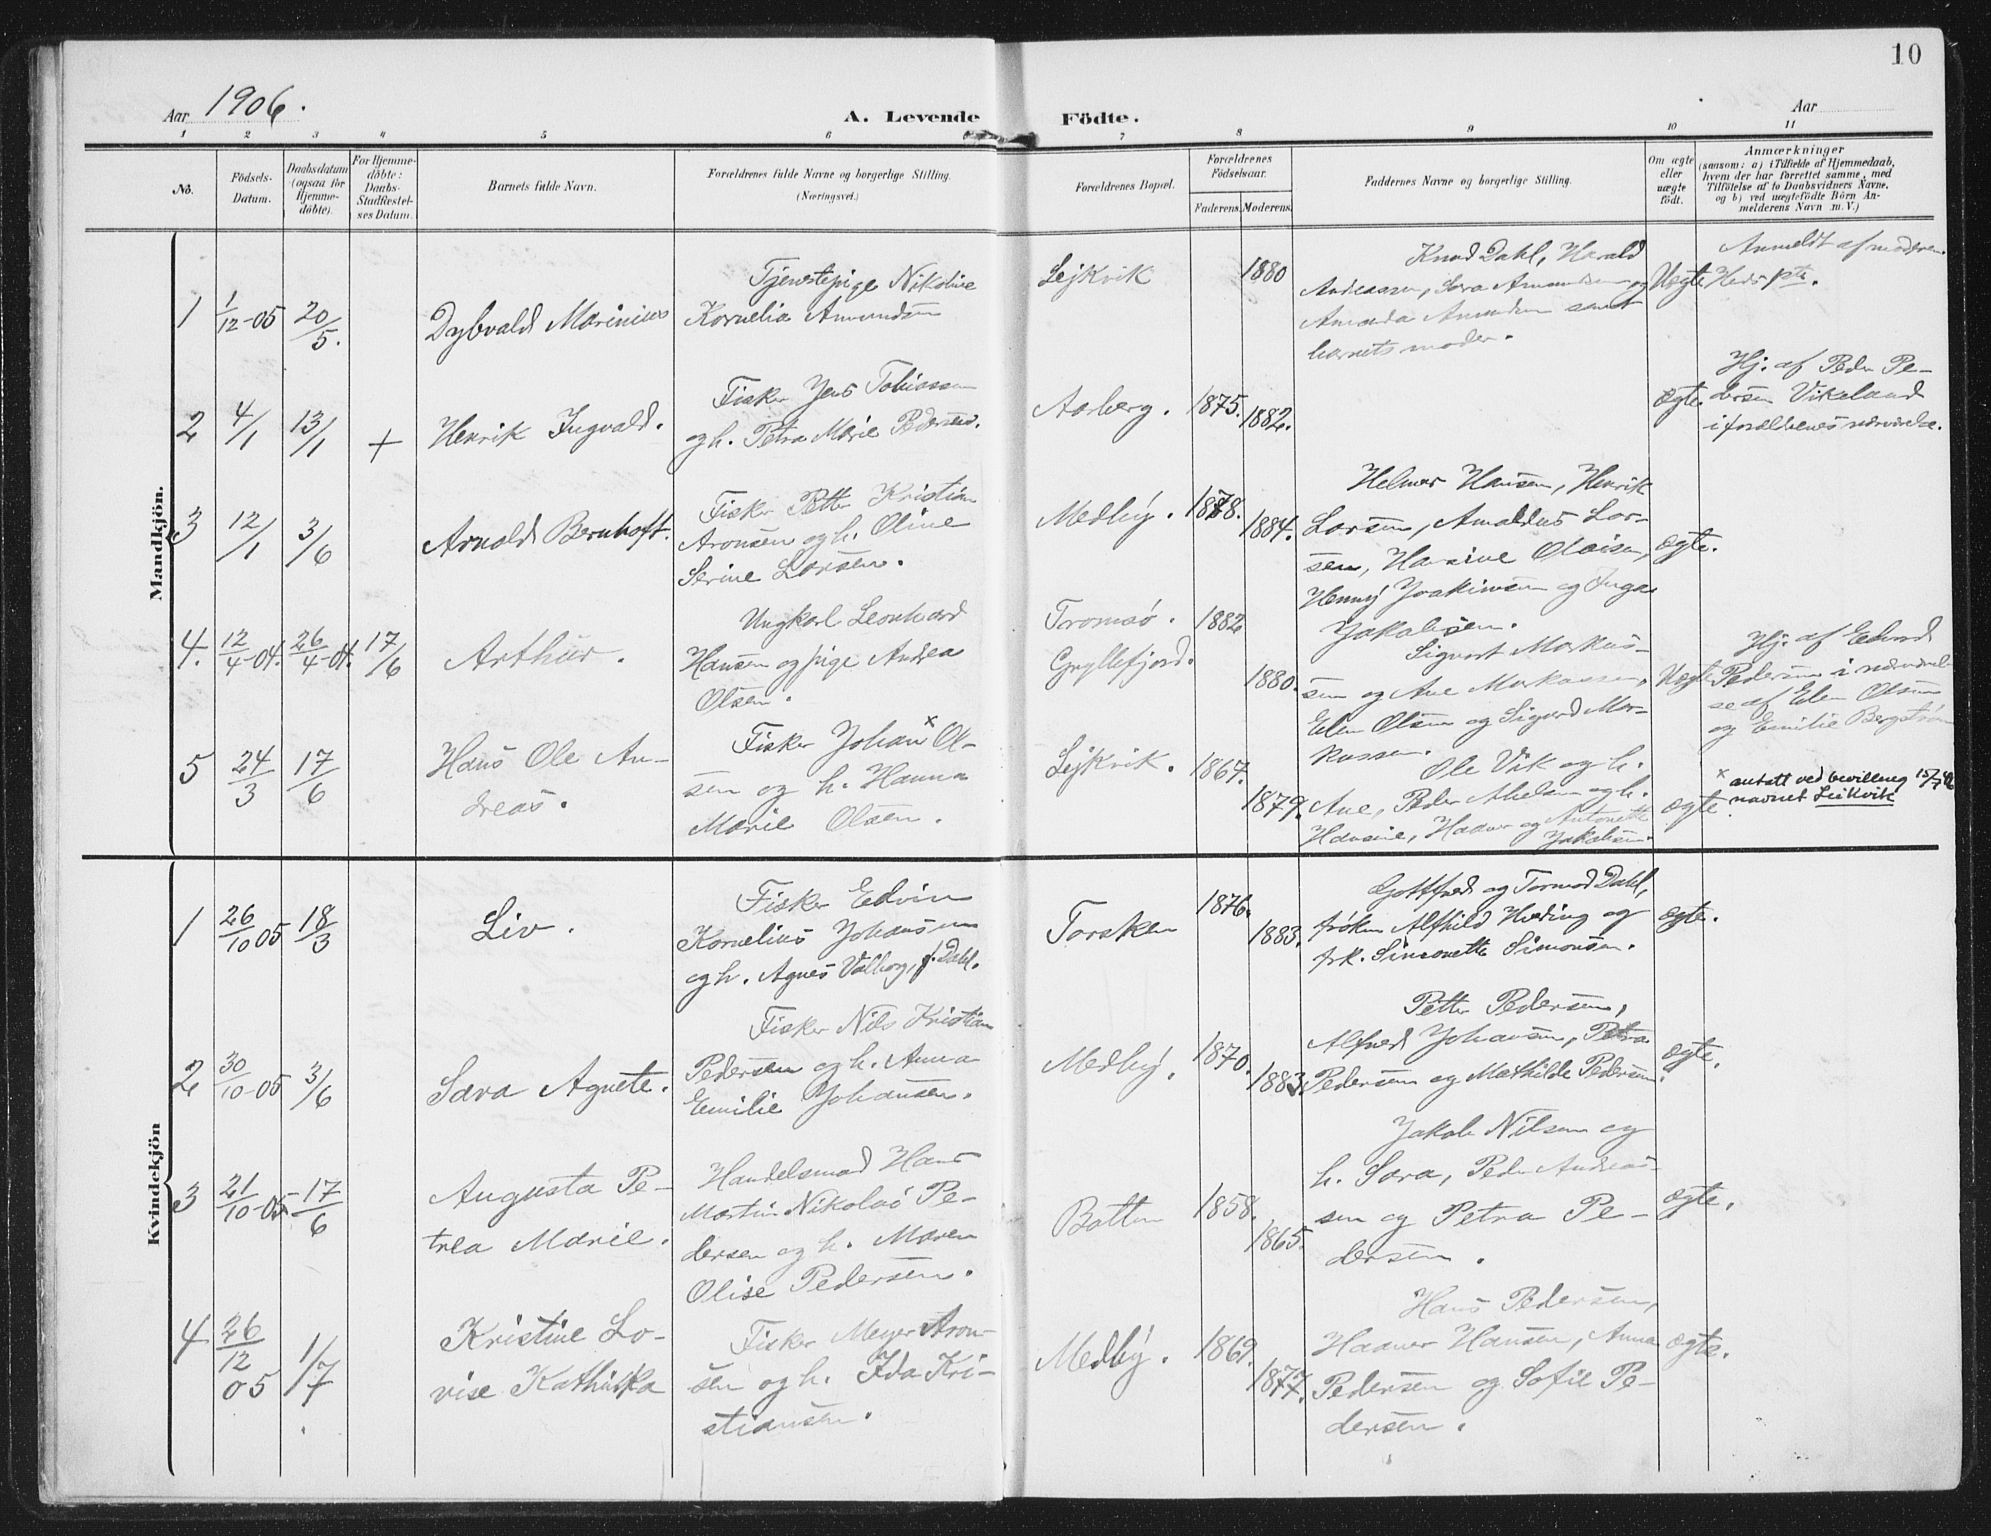 10
Aar 1906.
A. Levende Födte.
Aar
1 2 3 4 5 6 7 8 9 10 11
No.
Födsels-Datum.
Daabsdatum (ogsaa for Hjemme-döbte).
For Hjemme-döbte: Daabs-Stadfæstel-ses Datum.
Barnets fulde Navn.
Forældrenes fulde Navne og borgerlige Stilling. (Næringsvei.)
Forældrenes Bopæl.
Forældrenes Födselsaar.
Faderens. Moderens.
Faddernes Navne og borgerlige Stilling.
Om ægte eller uægte födt.
Anmærkninger
(saasom: a) i Tilfælde af Hjemmedaab,
hvem der har forrettet samme, med
Tilföielse af to Daabsvidners Navne,
og b) ved uægtefödte Börn An-
melderens Navn m. V.)
Mandkjön.
1 1/12-05 20/5. Dybvald Marinius
Tjenstepige Nikoline
Kornelia Amundsen
Lejkvik 1880
Knud Dahl, Harald
Andreassen, Sara Amundsen og
Amanda Amundsen samt
barnets moder.
Uægte
Anmeldt af moderen.
2 4/1 13/1 + Henrik Ingvald.
Fisker Jens Tobiassen
og h. Petra Marie Pedersen.
Aarberg. 1875. 1882.
ægte.
Hj. af Peder Pe-
dersen Vikeland
i forældrenes nærværelse.
3 12/1 3/6 Arnold Bernhoft.
Fisker Petter Kristian
Aronsen og h. Oline
Serine Larsen.
Medby. 1878. 1884.
Helmer Hansen, Henrik
Larsen, Arnoldus Lar-
sen, Hansine Olaisen,
Henny Joakimsen og Inga
Jakobsen.
ægte.
4. 12/4-04. 26/4-04. 17/6 Arthur.
Ungkarl Leonhard
Hansen og pige Andrea
Olsen.
Tromsö. 1882
Gryllefjord. 1880.
Sigvart Markus-
sen og Ane Markussen,
Elen Olsen og Sigurd Mar-
kussen.
Uægte
Hj. af Edvard
Pedersen i nærværel-
se af Elen Olsen
og Emilie Bergström
5 24/3 17/6 Hans Ole An-
dreas.
Fisker Johan x Ol-
sen og h. Hanna
Marie Olsen.
Lejkvik. 1867. 1879.
Ole Vik og h.
Ane, Peder Abelsen og h.
Hansine, Haaver og Antonette
Jakobsen.
ægte.
x antatt ved bevilling
navnet Leikvik
Kvindekjön
1 26/10 05 18/3 Liv.
Fisker Edvin
Kornelius Johansen
og h. Agnes Valborg, f. Dahl.
Torsken 1876. 1883.
Gottfred og Tormod Dahl,
fröken Alfhild Hveding og
frk. Simonette Simonsen.
ægte.
2 30/10-05 3/6 Sara Agnete.
Fisker Nils Kristian
Pedersen og h. Anna
Emilie Johansen.
Medby. 1870. 1883.
Petter Pedersen,
Alfred Johansen, Petra
Pedersen og Mathilde Pedersen.
ægte.
3 21/10-05 17/6 Augusta Pe-
trea Marie.
Handelsmad Hans
Martin Nikolas Pe-
dersen og h. Maren
Olise Pedersen.
Botten 1858. 1865.
Jakob Nilsen og
h. Sara, Peder Andreas-
sen og Petra Pe-
dersen.
ægte.
4 26/12 05 1/7 Kristine Lo-
vise Kathinka
Fisker Meyer Aron-
sen og h. Ida Kri-
stiansen.
Medby. 1869. 1877.
Hans Pedersen,
Haaver Hansen, Anna
Pedersen og Sofie Pe-
dersen.
ægte.